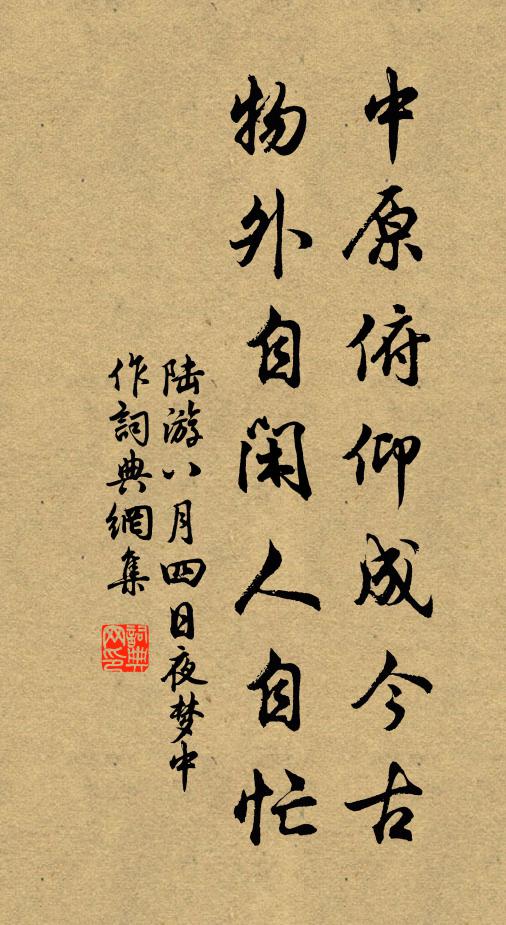 中原俯仰成今古
物外自闲人自忙
陆游八月四日夜梦中
作詞典網集
詞典
网印